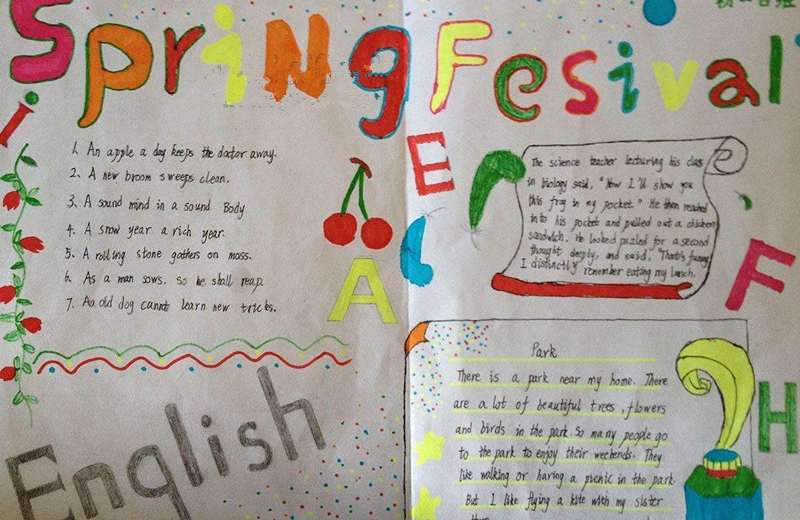 Spring Fesival
1. An apple a day keeps the doctor away.
2. A new broom sweeps clean.
3. A sound mind in a sound Body
4. A snow year a rich year.
5. A rolling stone gathers on moss.
6. As a man sows. so he shall reap.
7. Aa old dog cannot learn new tricks.
English
I
E
A
F
H
The science teacher lecturing his class
in biology said, "Now I'll show you
this frog in my pocket." He then reached
into his pocket and pulled out a chicken
sandwich. He looked puzled for a second
thought deeply, and said, That's funny
I distinctly remember eating my lunch.
Park
There is a park near my home. There
are a lot of beautiful trees, flowers
and birds in the park. So many people go
to the park to enjoy their weekends. They
like walking or having a picnic in the park.
But I like flying a kite with my sister